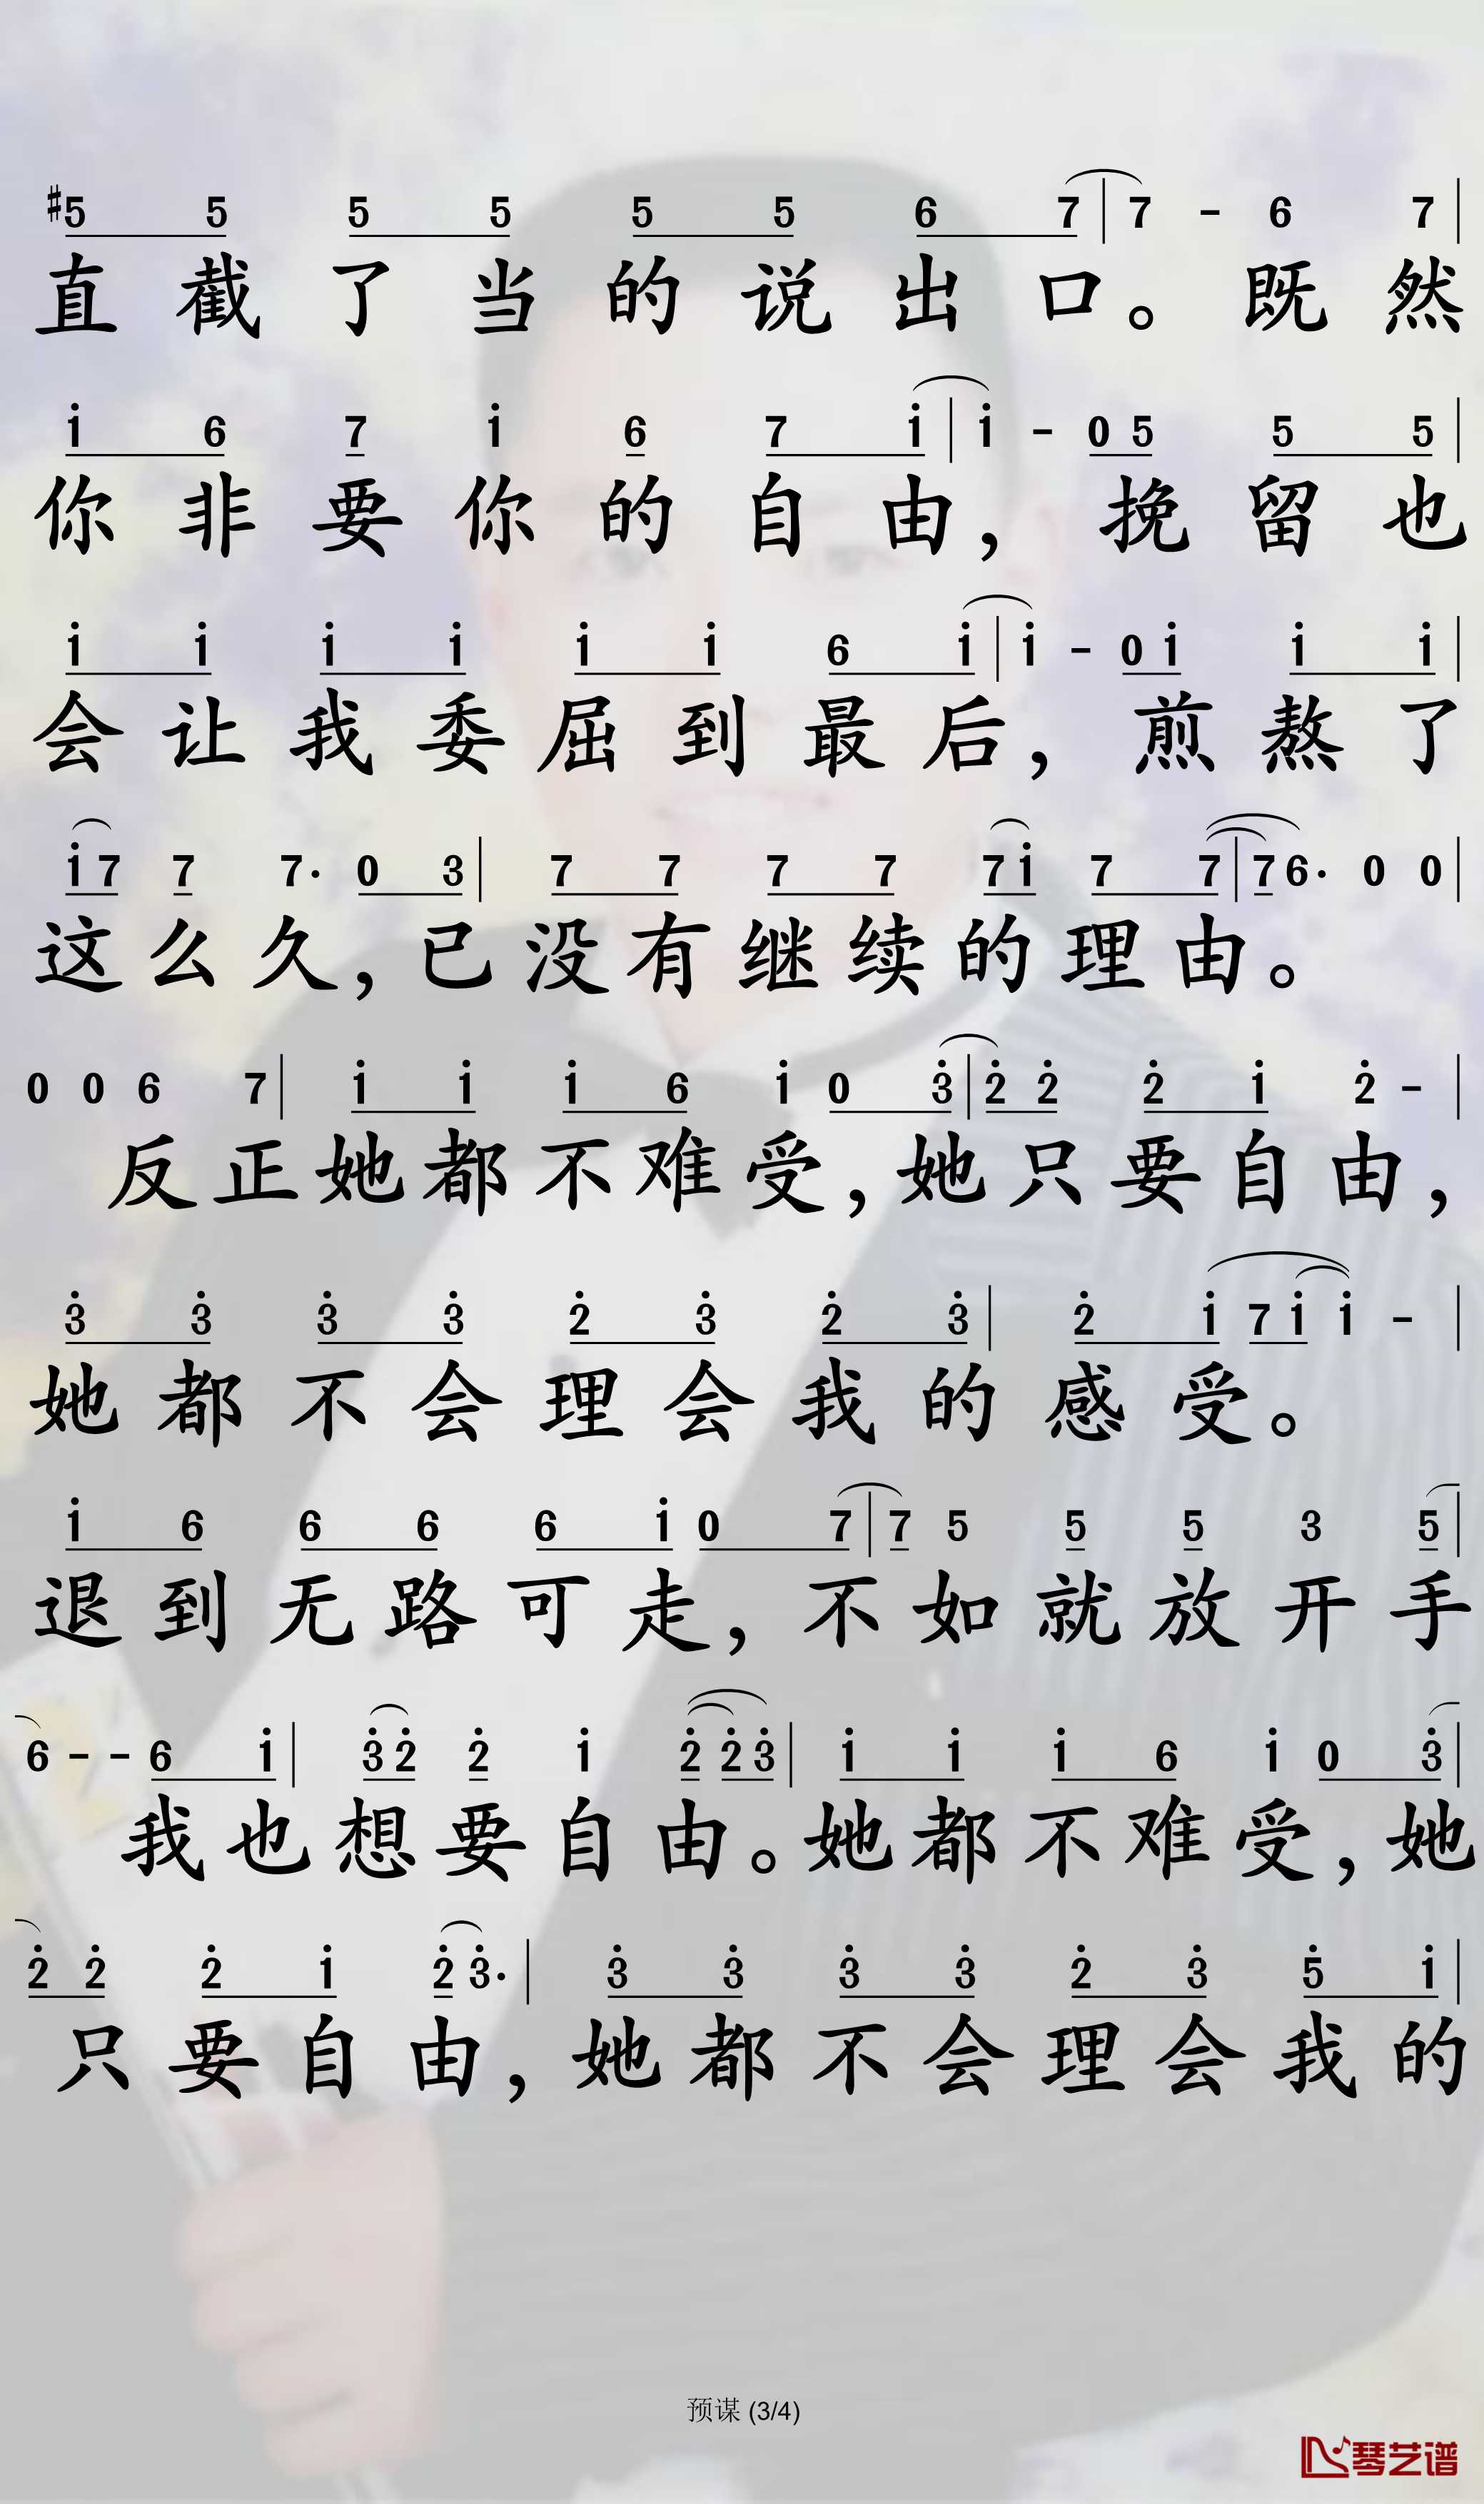 #5 5 5 5 5 5 6 7 | 7 - 6 7 |
直截了当的说出口。既然
i 6 7 i 6 7 i | i - 0 5 5 5 |
你非要你的自由，挽留也
i i i i i i 6 i | i - 0 i i i |
会让我委屈到最后，煎熬了
i 7 7 7· 0 3 | 7 7 7 7 7 i 7 7 | 7 6· 0 0 |
这么久，已没有继续的理由。
0 0 6 7 | i i i 6 i 0 3̇ | 2̇ 2̇ 2̇ i 2̇ - |
反正她都不难受，她只要自由，
3̇ 3̇ 3̇ 3̇ 2̇ 3̇ 2̇ 3̇ | 2̇ i 7 i i - |
她都不会理会我的感受。
i 6 6 6 6 i 0 7 | 7 5 5 5 3 5 |
退到无路可走，不如就放开手
6 - - 6 i | 3̇ 2̇ 2̇ i 2̇ 2̇ 3̇ | i i i 6 i 0 3̇ |
我也想要自由。她都不难受，她
2̇ 2̇ 2̇ i 2̇ 3̇· | 3̇ 3̇ 3̇ 3̇ 2̇ 3̇ 5̇ i |
只要自由，她都不会理会我的
预谋 (3/4)
琴艺谱